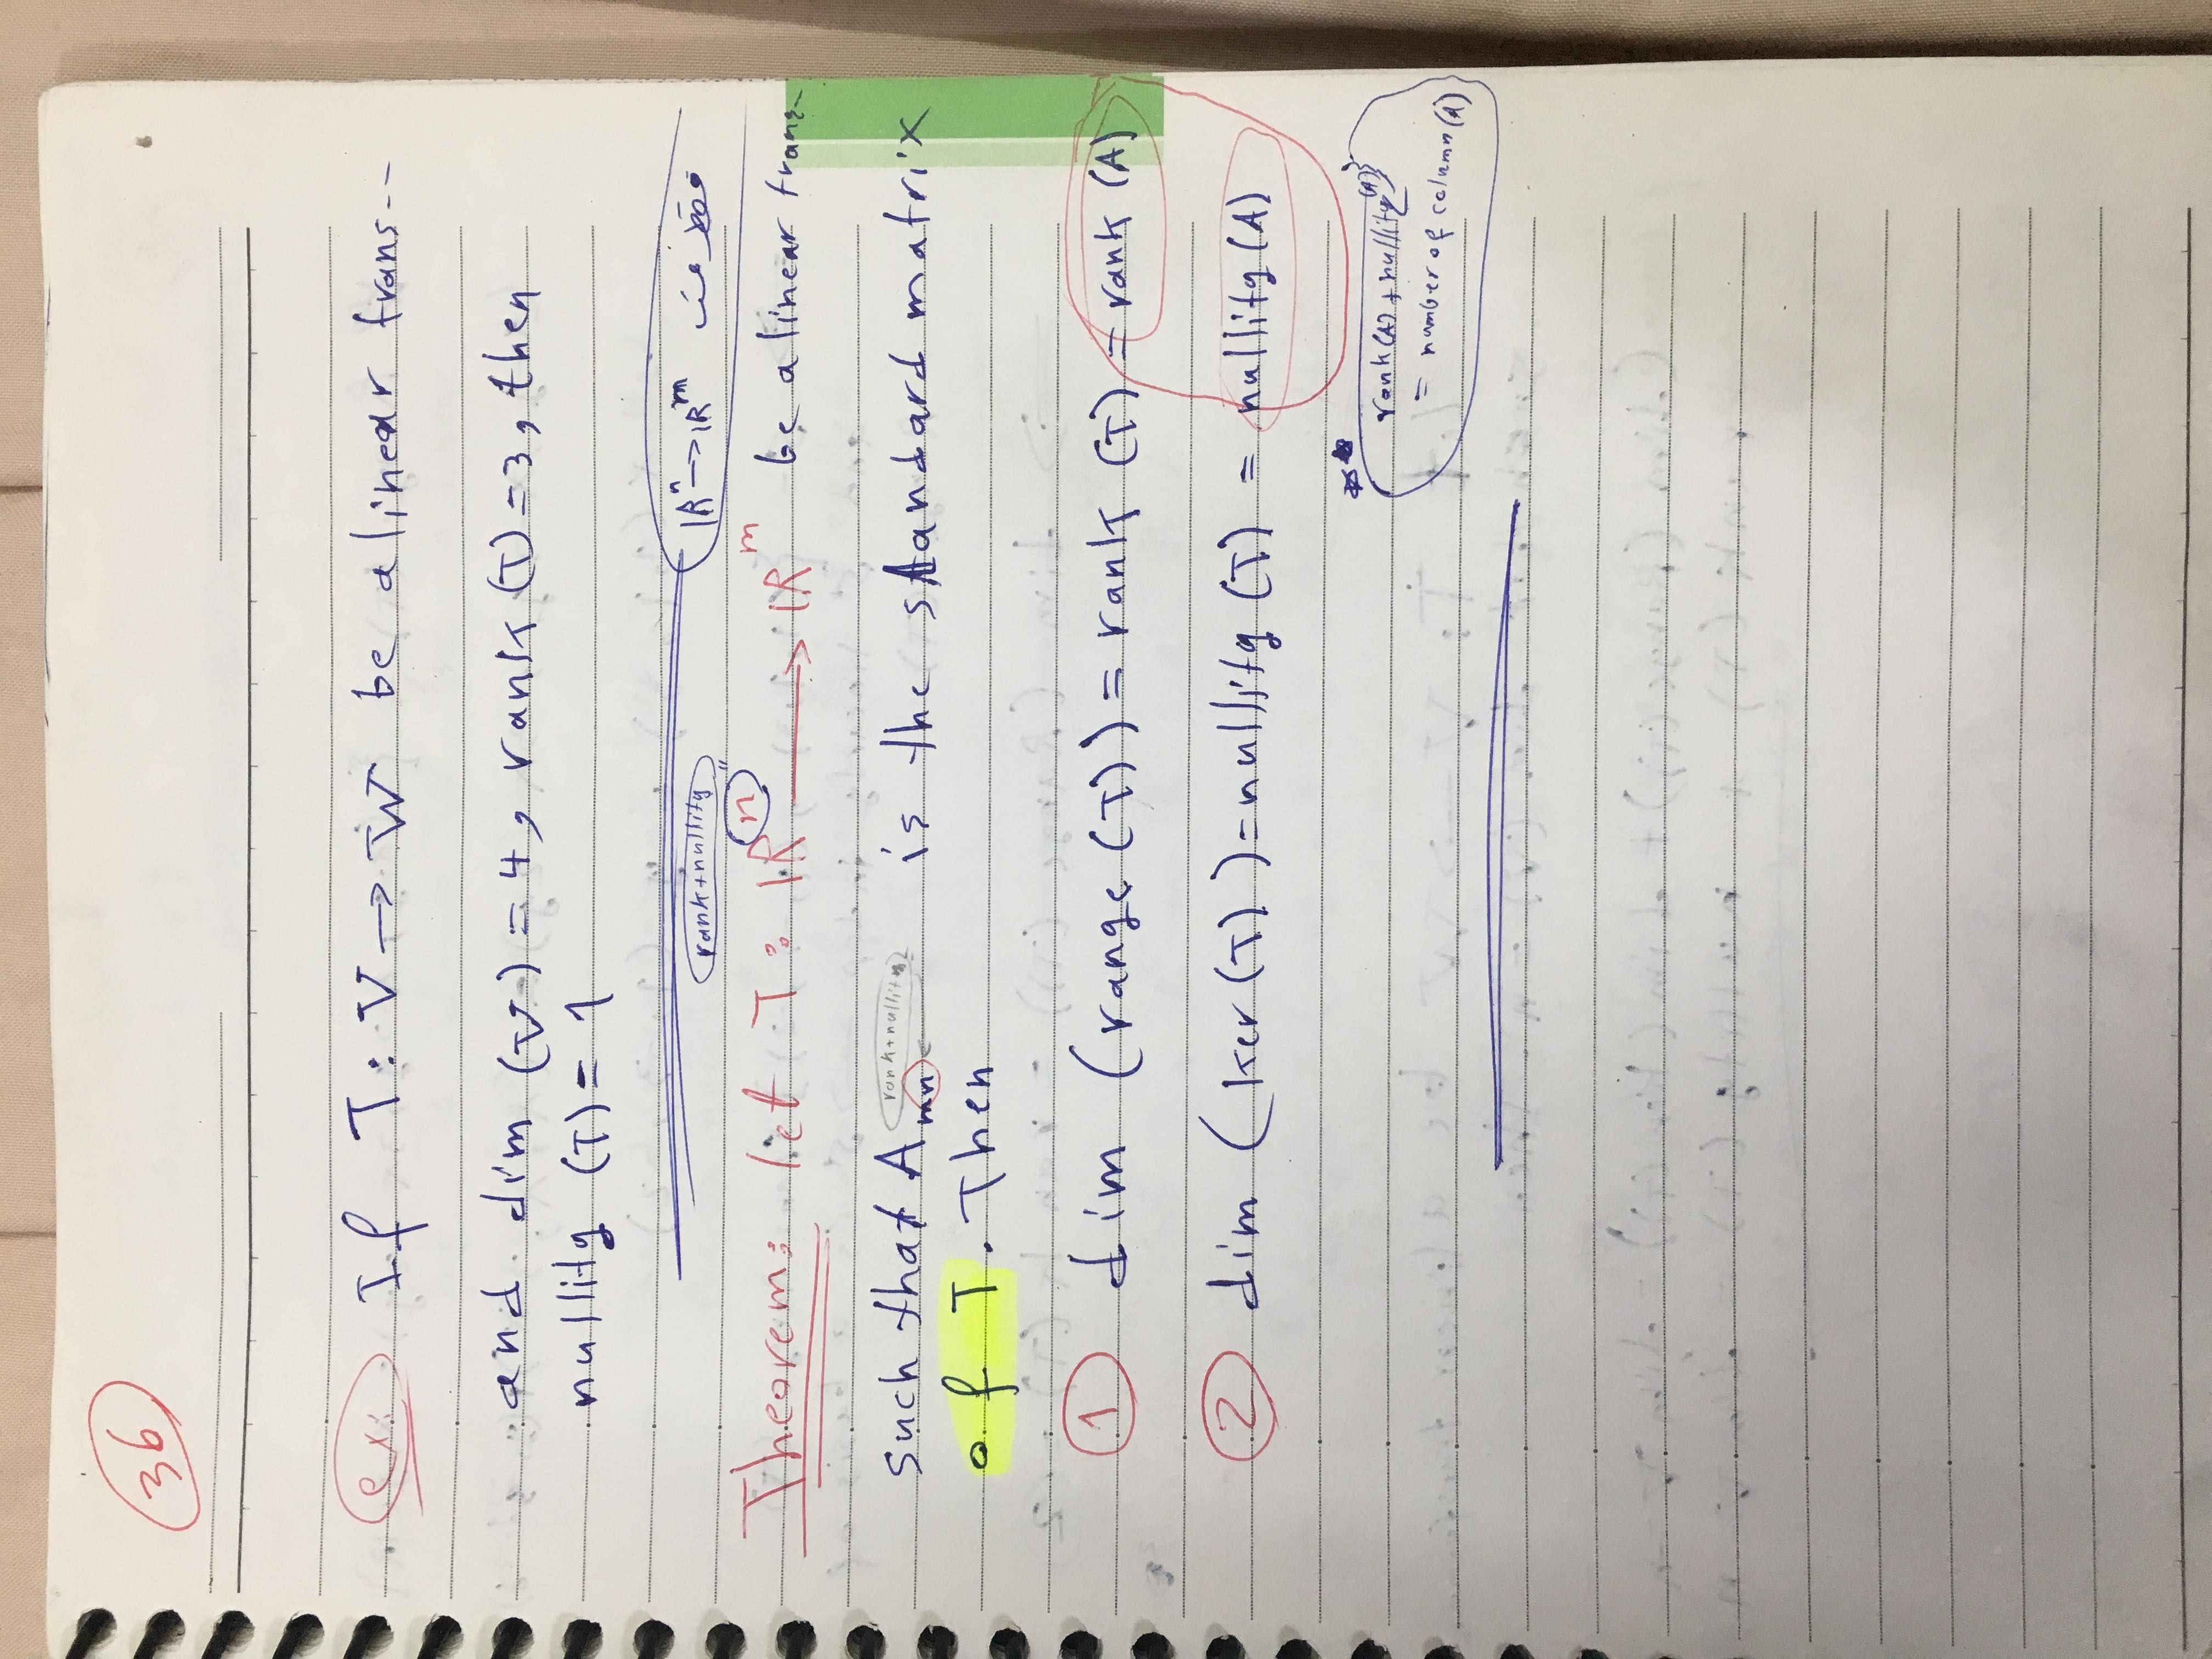 36
ex: If T: V → W be a linear trans--
and dim (V) = 4, rank (T) = 3, then
nullity (T) = 1
فقط من ℝⁿ → ℝᵐ
rank+nullity
Theorem: let T: ℝⁿ → ℝᵐ be a linear trans--
rank+nullity
such that Aₘₙ is the standard matrix
of T. Then
① dim (range (T)) = rank (T) = rank (A)
② dim (ker (T)) = nullity (T) = nullity (A)
rank(A)+nullity(A)
= number of column(A)